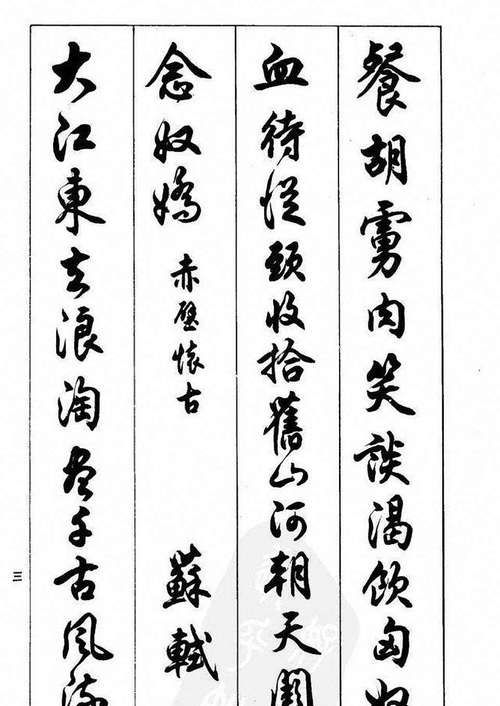 餐胡虜肉笑談渴飲匈奴
血待從頭收拾舊山河朝天闕
念奴嬌 赤壁懷古 蘇軾
大江東去浪淘盡千古風流
三